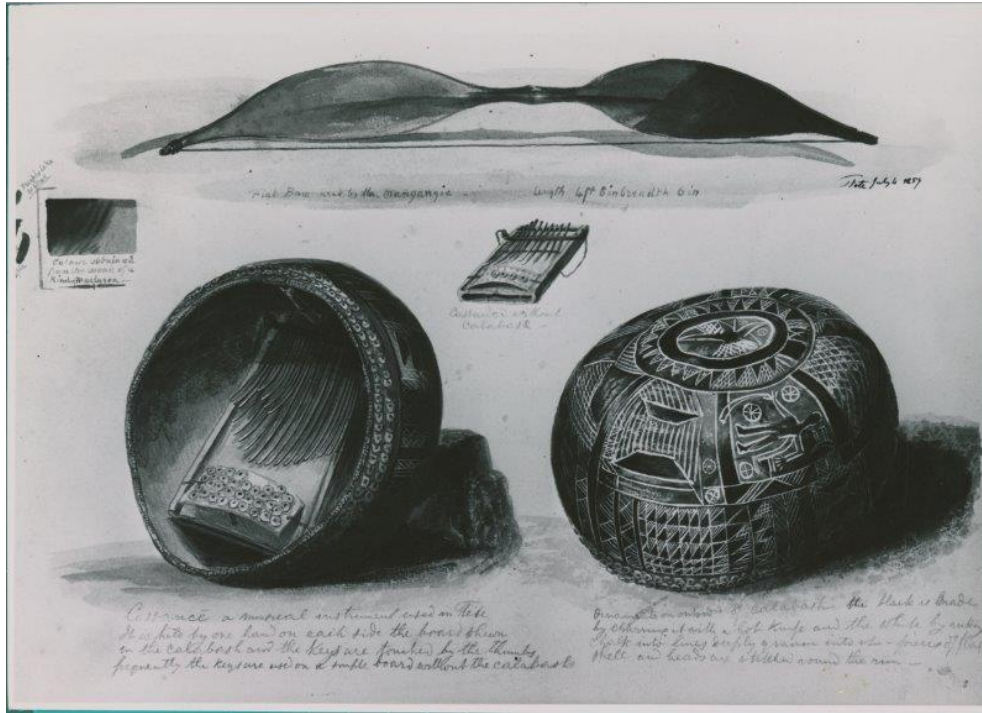 Flat Bow used by the Mangangie length 4ft 8in breadth 6 in
Tete July 6 1859
Colour obtained
from the
kind of
Cassance without
Calabash
Cassance a musical instrument used in Tete
It is held by one hand on each side the board shewn
in the calabash and the keys are touched by the thumbs
frequently the keys are used on a simple board without the calabash
Ornamentation outside of calabash the black is made
by charring it with a hot knife and the white by
into lines deeply graven into the
shell and beads are round the rim